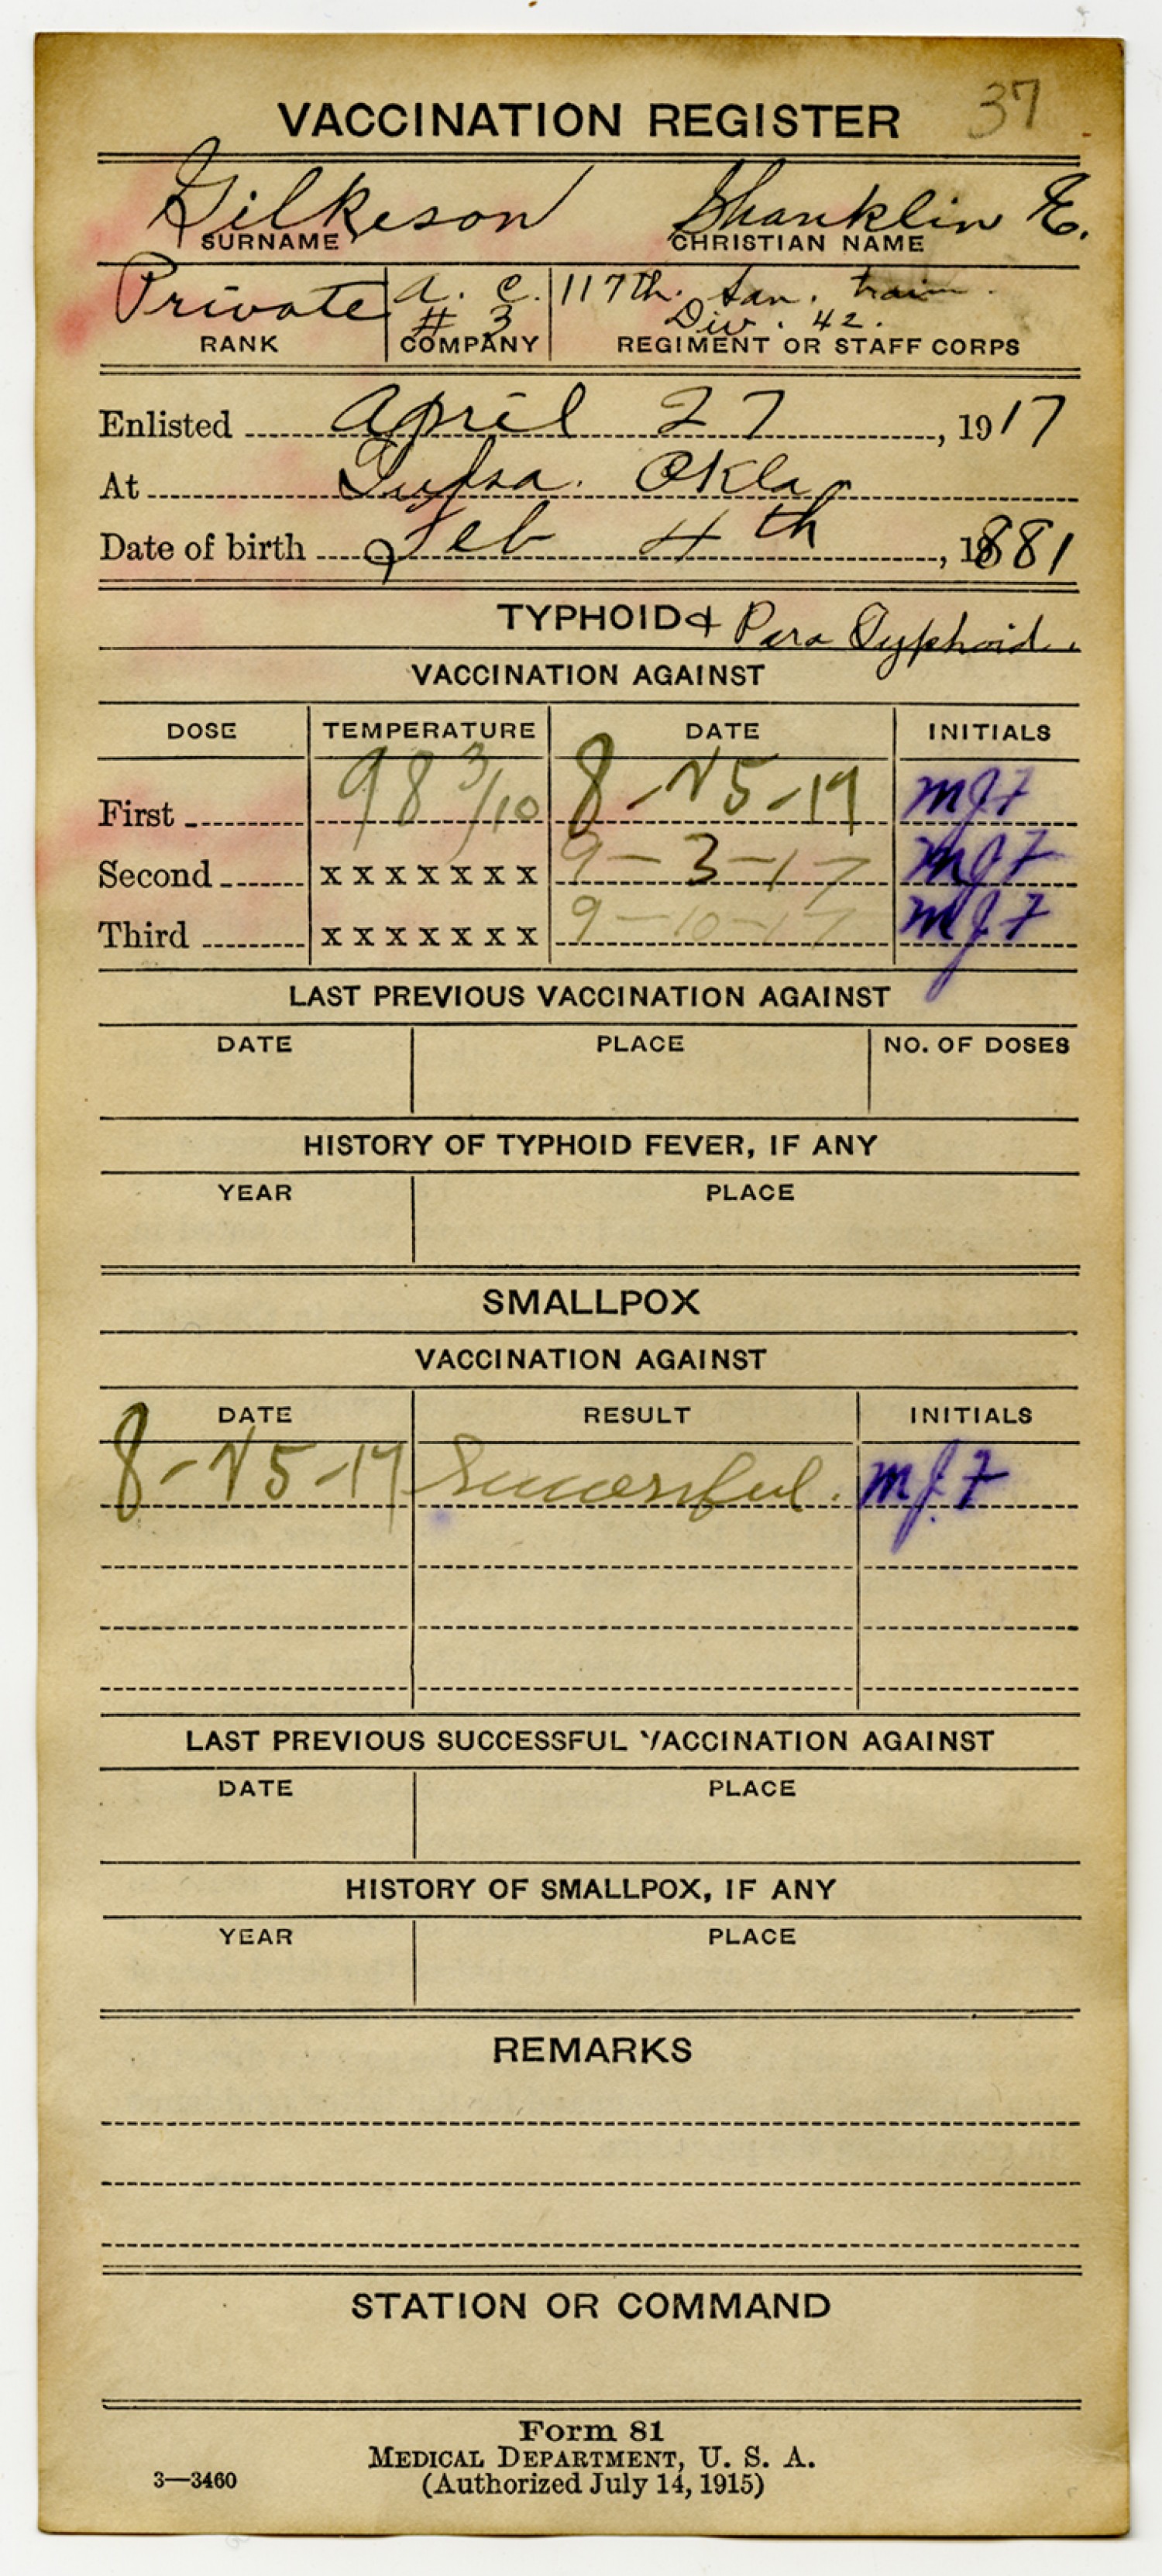 VACCINATION REGISTER 37
Gilkeson Shanklin E.
SURNAME CHRISTIAN NAME
Private A. C. 117th. San. train.
# 3 Div. 42.
RANK COMPANY REGIMENT OR STAFF CORPS
Enlisted April 27, 1917
At Tulsa. Okla.
Date of birth Feb 4th, 1881
TYPHOID & Para Typhoid.
VACCINATION AGAINST
DOSE TEMPERATURE DATE INITIALS
First 98 3/10 8-25-17 MJF
Second x x x x x x x 9-3-17 MJF
Third x x x x x x x 9-10-17 MJF
LAST PREVIOUS VACCINATION AGAINST
DATE PLACE NO. OF DOSES
HISTORY OF TYPHOID FEVER, IF ANY
YEAR PLACE
SMALLPOX
VACCINATION AGAINST
DATE RESULT INITIALS
8-25-17 Successful. MJF
LAST PREVIOUS SUCCESSFUL VACCINATION AGAINST
DATE PLACE
HISTORY OF SMALLPOX, IF ANY
YEAR PLACE
REMARKS
STATION OR COMMAND
Form 81
MEDICAL DEPARTMENT, U. S. A.
3—3460 (Authorized July 14, 1915)